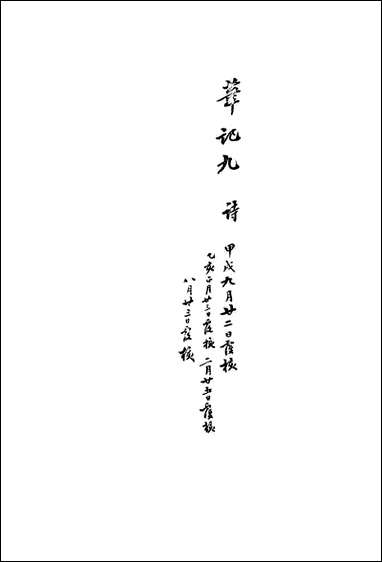 筆記九 詩
甲戌九月廿二日覆核
乙亥正月廿三日覆核 二月廿五日覆核
八月廿三日覆核